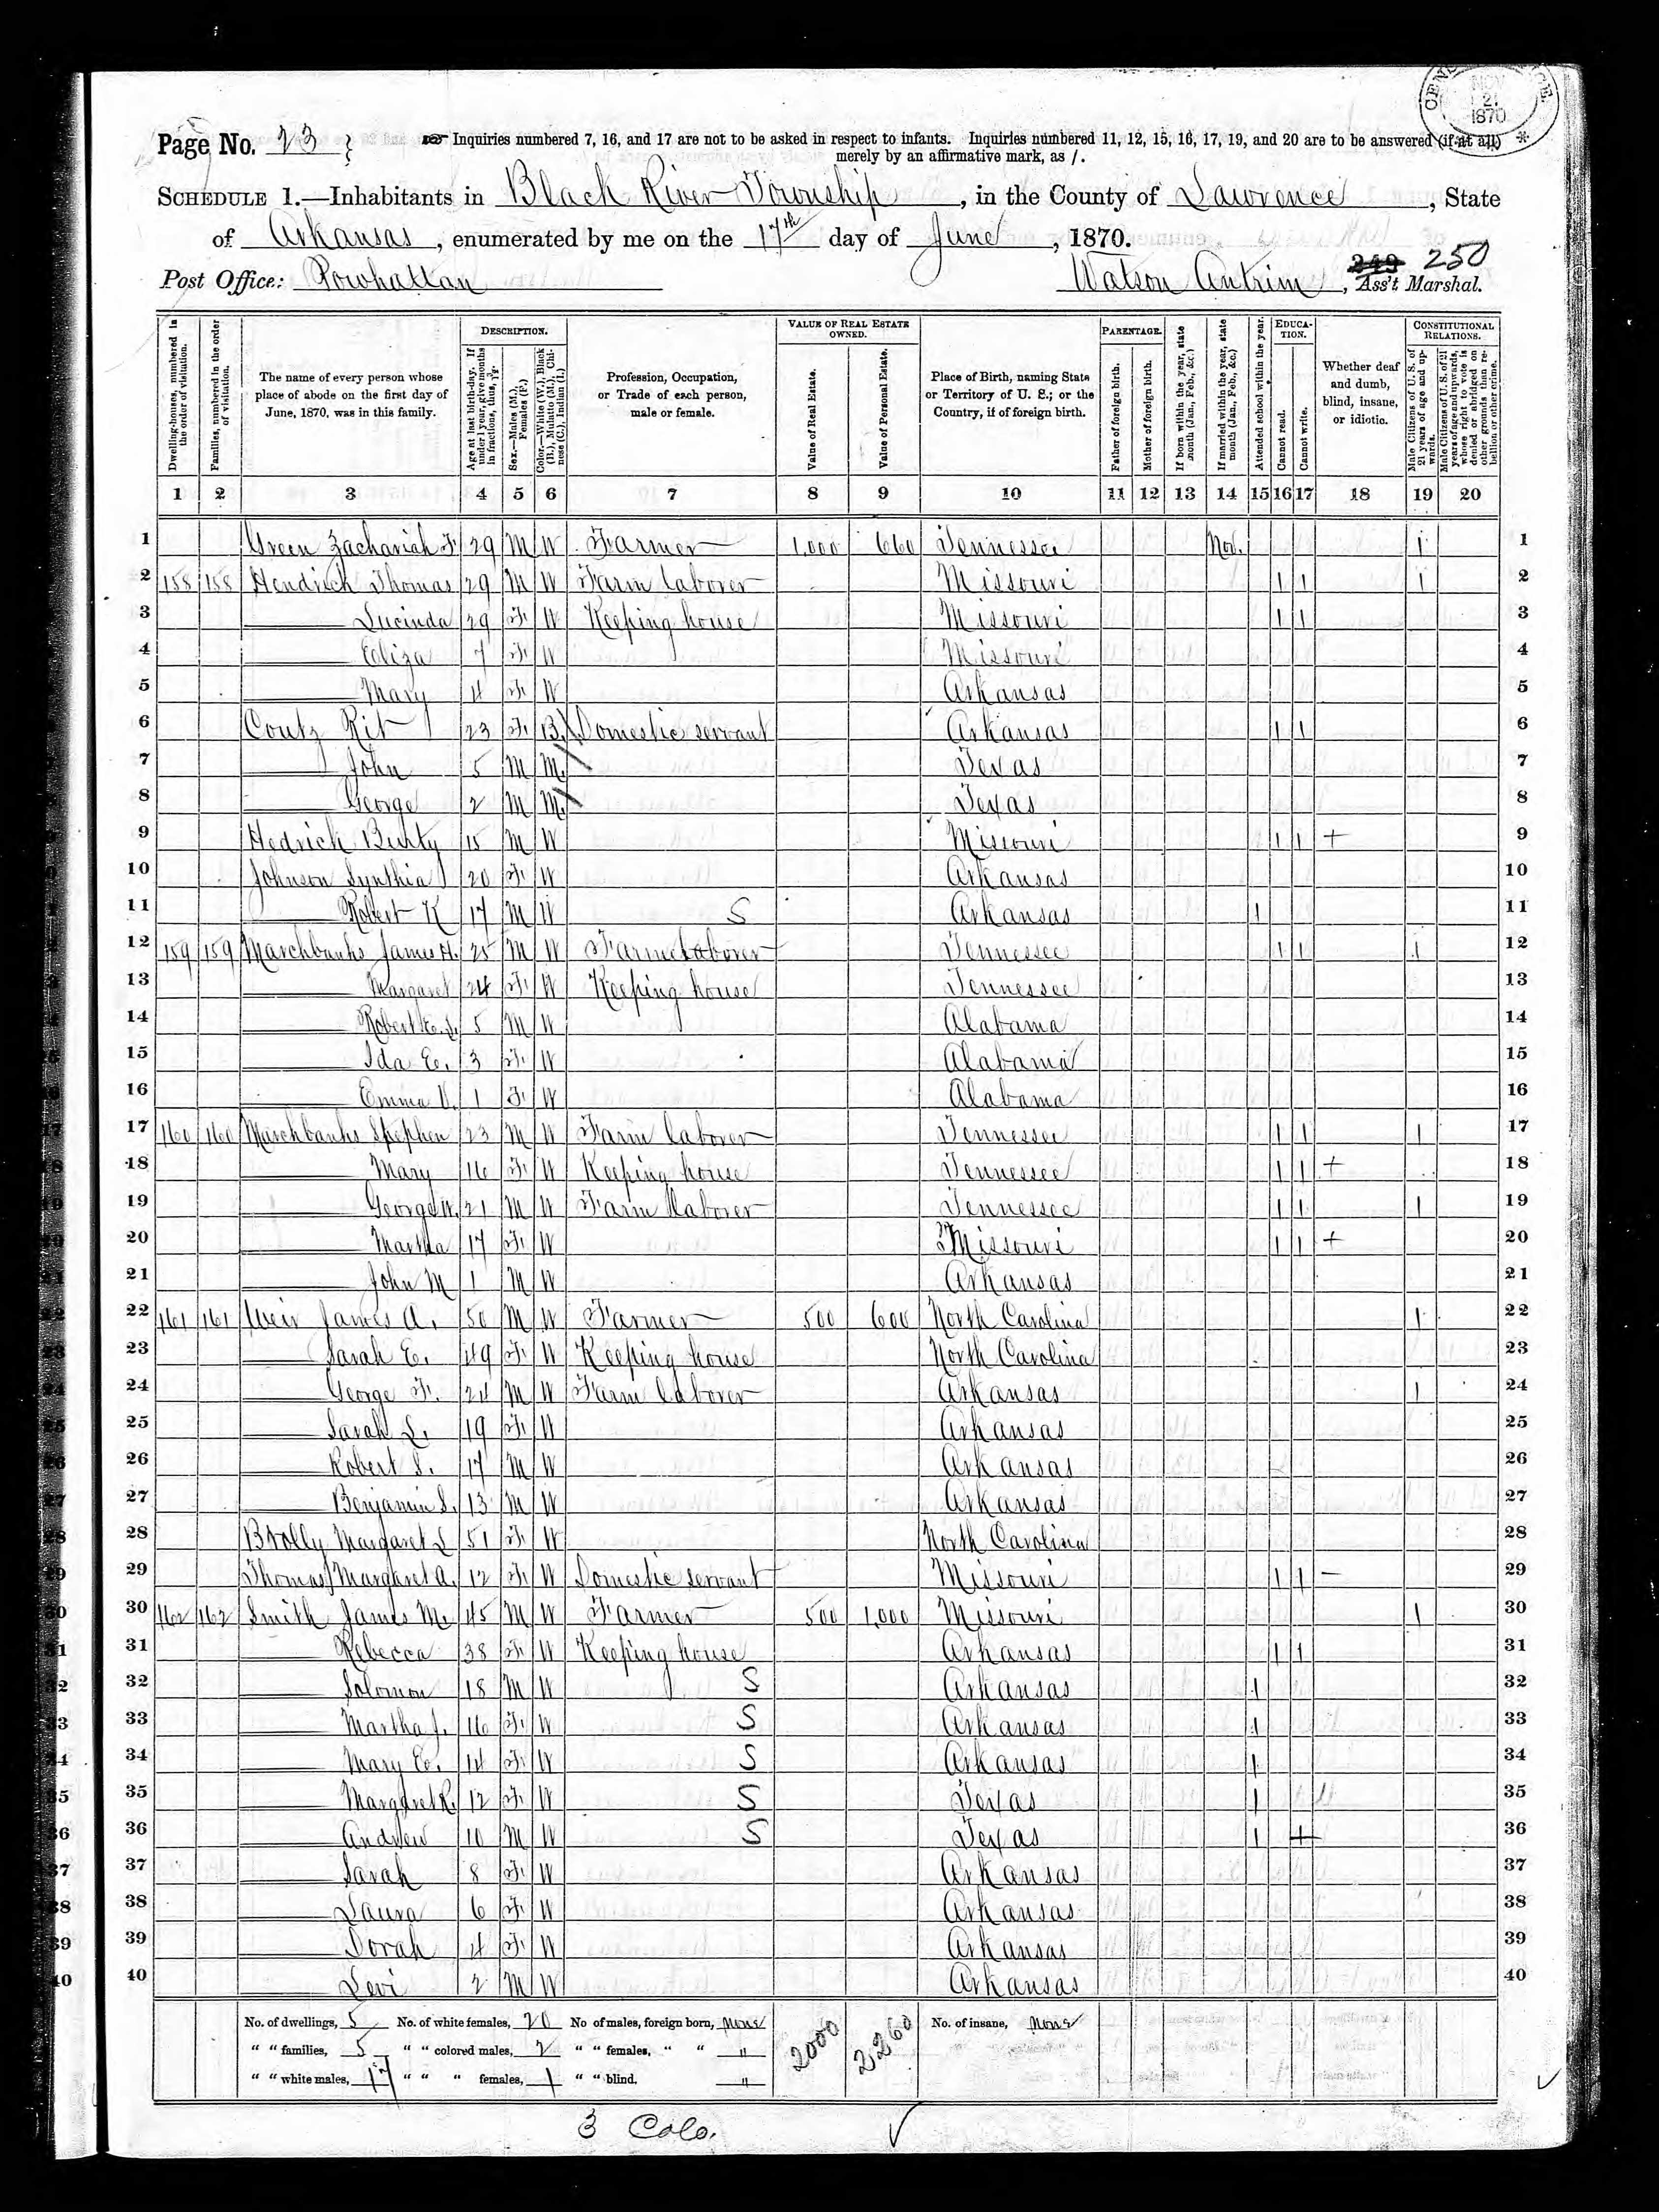 CENSUS OFFICE NOV 21 1870
Page No. 23 Inquiries numbered 7, 16, and 17 are not to be asked in respect to infants. Inquiries numbered 11, 12, 15, 16, 17, 19, and 20 are to be answered (if at all)
merely by an affirmative mark, as /.
SCHEDULE 1.—Inhabitants in Black River Township, in the County of Lawrence, State
of Arkansas, enumerated by me on the 17th day of June, 1870.
249 250
Post Office: Powhattan Watson Antrim, Ass't Marshal.
Dwelling-houses, numbered in the order of visitation.
Families, numbered in the order of visitation.
The name of every person whose place of abode on the first day of June, 1870, was in this family.
DESCRIPTION.
Age at last birth-day. If under 1 year, give months in fractions, thus, 3/12.
Sex.—Males (M.), Females (F.)
Color.—White (W.), Black (B.), Mulatto (M.), Chinese (C.), Indian (I.)
Profession, Occupation, or Trade of each person, male or female.
VALUE OF REAL ESTATE OWNED.
Value of Real Estate.
Value of Personal Estate.
Place of Birth, naming State or Territory of U. S.; or the Country, if of foreign birth.
PARENTAGE.
Father of foreign birth.
Mother of foreign birth.
If born within the year, state month (Jan., Feb., &c.)
If married within the year, state month (Jan., Feb., &c.)
Attended school within the year.
EDUCATION.
Cannot read.
Cannot write.
Whether deaf and dumb, blind, insane, or idiotic.
CONSTITUTIONAL RELATIONS.
Male Citizens of U. S. of 21 years of age and upwards.
Male Citizens of U. S. of 21 years of age and upwards, whose right to vote is denied or abridged on other grounds than rebellion or other crime.
1 2 3 4 5 6 7 8 9 10 11 12 13 14 15 16 17 18 19 20
1 Green Zachariah F. 29 M W Farmer 1,000 660 Tennessee Nov. 1 1
2 158 158 Hendrick Thomas 29 M W Farm laborer Missouri 1 1 1 2
3 —— Lucinda 29 F. W Keeping house Missouri 1 1 3
4 —— Eliza 7 F. W Missouri 4
5 —— Mary 4 F. W Arkansas 5
6 Coutz Rit 23 F. B. Domestic servant Arkansas 1 1 6
7 —— John 5 M M. Texas 7
8 —— George 2 M M. Texas 8
9 Hedrick Burty 15 M W Missouri 1 1 + 9
10 Johnson Synthia 20 F. W Arkansas 10
11 —— Robert K 17 M W S Arkansas 1 11
12 159 159 Marchbanks James H. 25 M W Farm laborer Tennessee 1 1 1 12
13 —— Margaret 24 F. W Keeping house Tennessee 13
14 —— Robert E. L. 5 M W Alabama 14
15 —— Ida E. 3 F. W Alabama 15
16 —— Emma V. 1 F. W Alabama 16
17 160 160 Marchbanks Spephen 23 M W Farm laborer Tennessee 1 1 1 17
18 —— Mary 16 F. W Keeping house Tennessee 1 1 + 18
19 —— George W. 21 M W Farm laborer Tennessee 1 1 1 19
20 —— Martha 17 F. W Missouri 1 1 + 20
21 —— John M 1 M W Arkansas 21
22 161 161 Weir James A. 50 M W Farmer 500 600 North Carolina 1 22
23 —— Sarah E. 49 F. W Keeping house North Carolina 23
24 —— George F. 24 M W Farm laborer Arkansas 1 24
25 —— Sarah L. 19 F. W Arkansas 25
26 —— Robert S. 17 M W Arkansas 26
27 —— Benjamin S. 13 M W Arkansas 27
28 Brolly Margaret L 51 F. W North Carolina 28
29 Thomas Margaret A. 12 F. W Domestic servant Missouri 1 1 - 29
30 162 162 Smith James M. 45 M W Farmer 500 1,000 Missouri 1 30
31 —— Rebecca 38 F. W Keeping house Arkansas 1 1 31
32 —— Solomon 18 M W S Arkansas 1 32
33 —— Martha J. 16 F. W S Arkansas 1 33
34 —— Mary E. 14 F. W S Arkansas 1 34
35 —— Margaret R. 12 F. W S Texas 1 35
36 —— Andrew 10 M W S Texas 1 + 36
37 —— Sarah 8 F. W Arkansas 37
38 —— Laura 6 F. W Arkansas 38
39 —— Dorah 4 F. W Arkansas 39
40 —— Levi 2 M W Arkansas 40
No. of dwellings, 5 No. of white females, 20 No of males, foreign born, None 2000 2260 No. of insane, None
" " families, 5 " " colored males, 2 " " females, " " "
" " white males, 17 " " " females, 1 " " blind. "
3 Colo. ✓